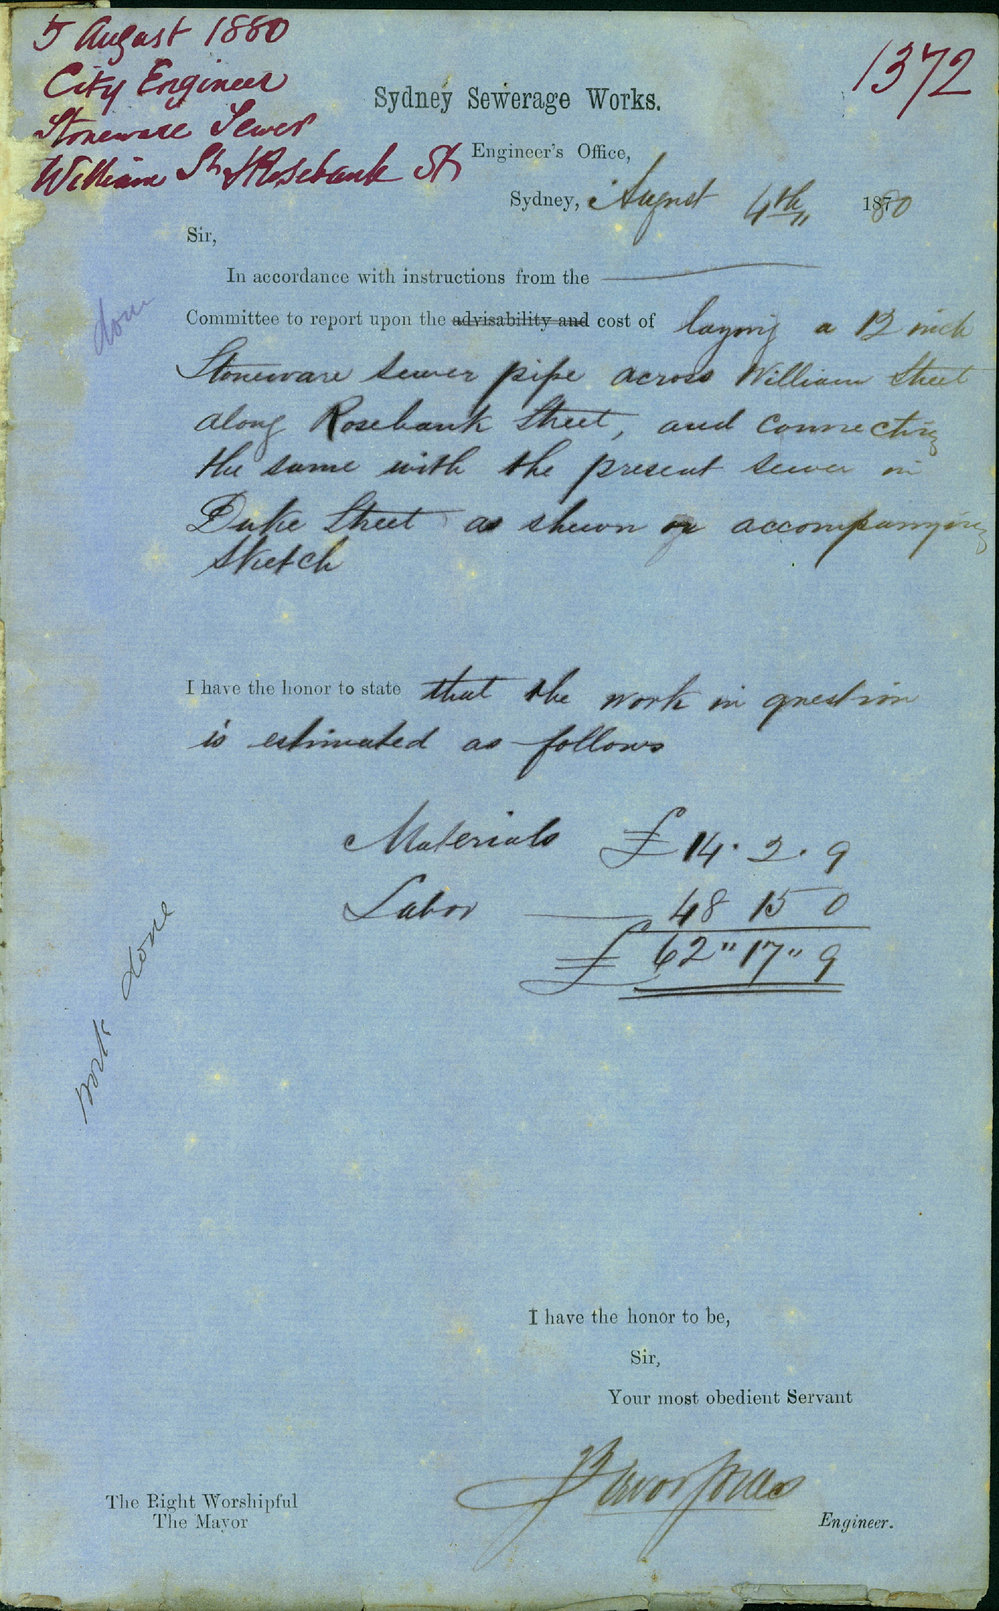 5 August 1880
City Engineer
Stoneware Sewer
William St & Rosebank St
1372
Sydney Sewerage Works.
Engineer's Office,
Sydney, August 4th 1880
Sir,
In accordance with instructions from the
Committee to report upon the advisability and cost of laying a 12 inch
Stoneware sewer pipe across William Street
along Rosebank Street, and connecting
the same with the present sewer in
Duke Street as shewn on accompanying
Sketch
done
I have the honor to state that the work in question
is estimated as follows
Materials £ 14 . 2 . 9
Labor 48 15 0
£ 62 " 17 " 9
work done
I have the honor to be,
Sir,
Your most obedient Servant
Engineer.
The Right Worshipful
The Mayor